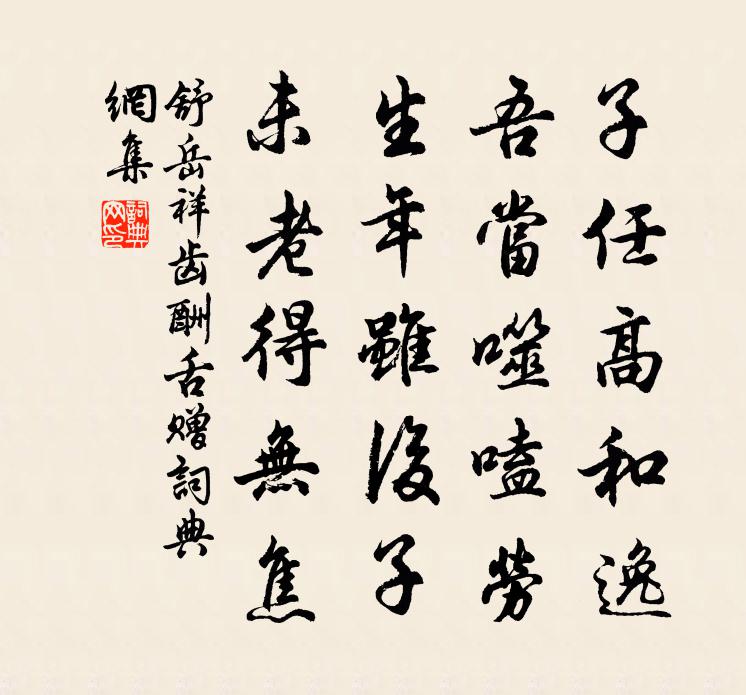 子任高和逸
吾當噬嗑勞
生年雖後子
未老得無焦
舒岳祥齿酬舌赠詞典
網集
詞典
网印